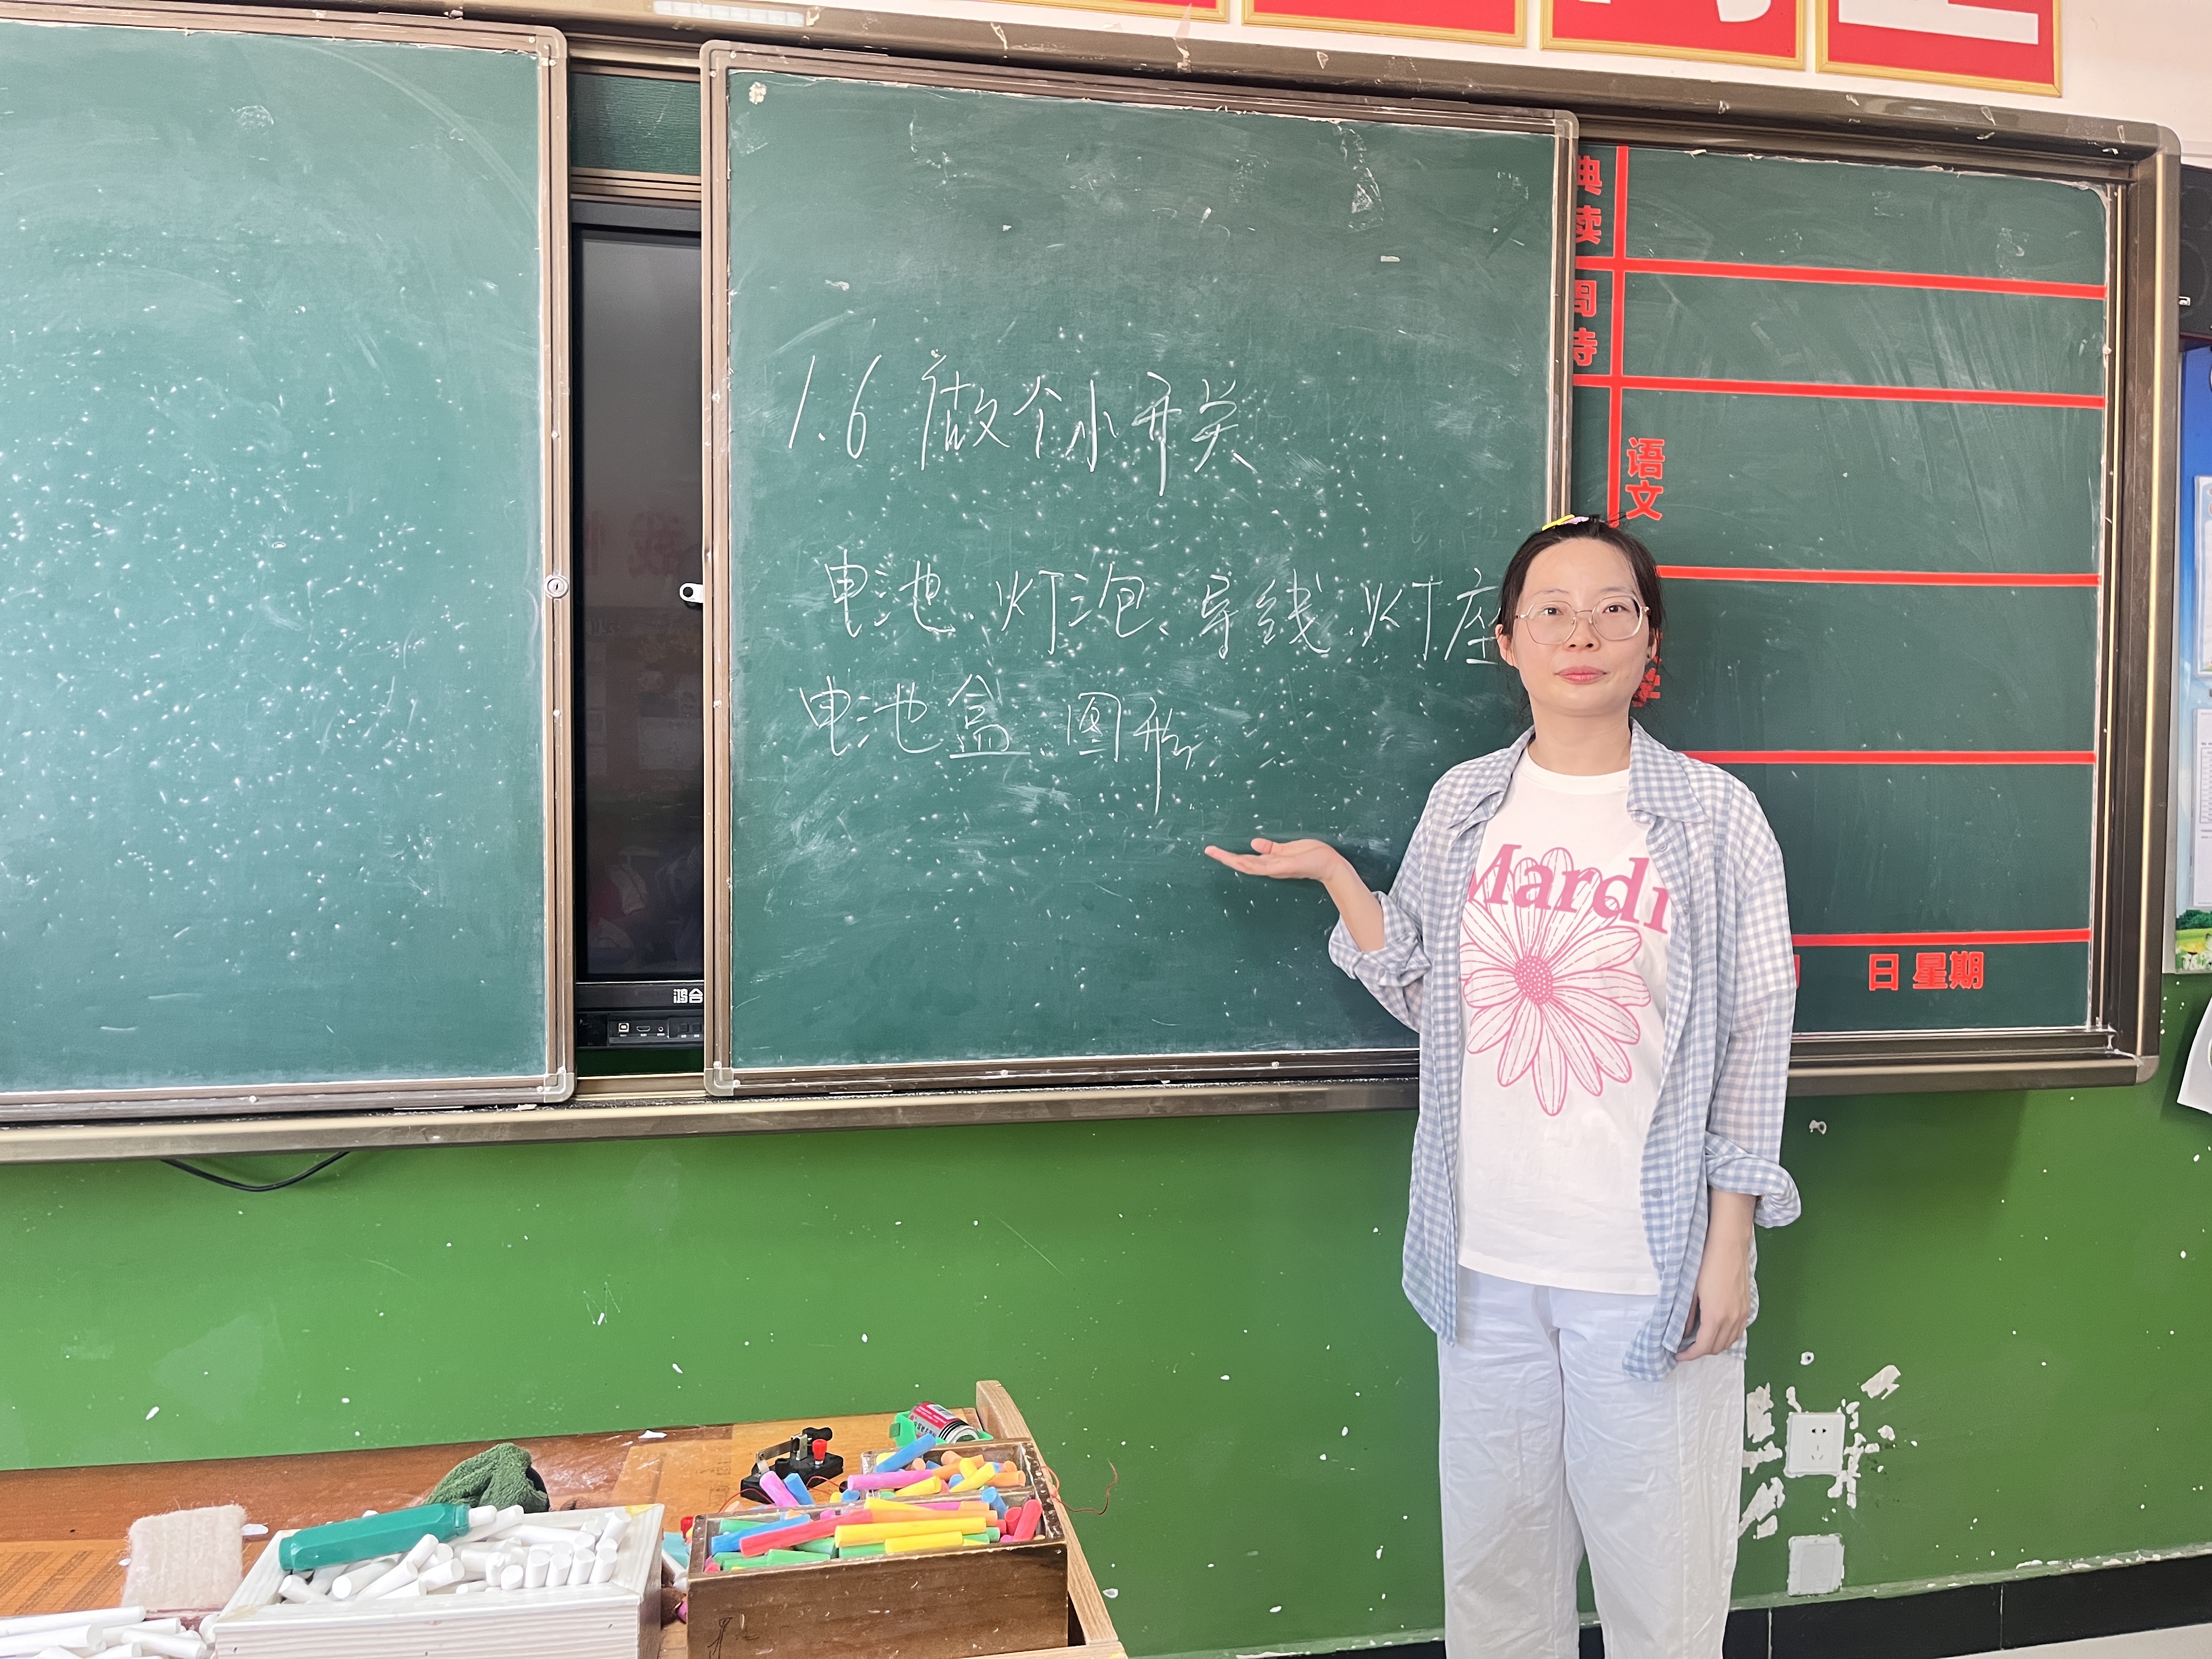 1.6 做个小开关
电池、灯泡、导线、灯座
电池盒、图形
语文
日 星期
鸿合
Mardi